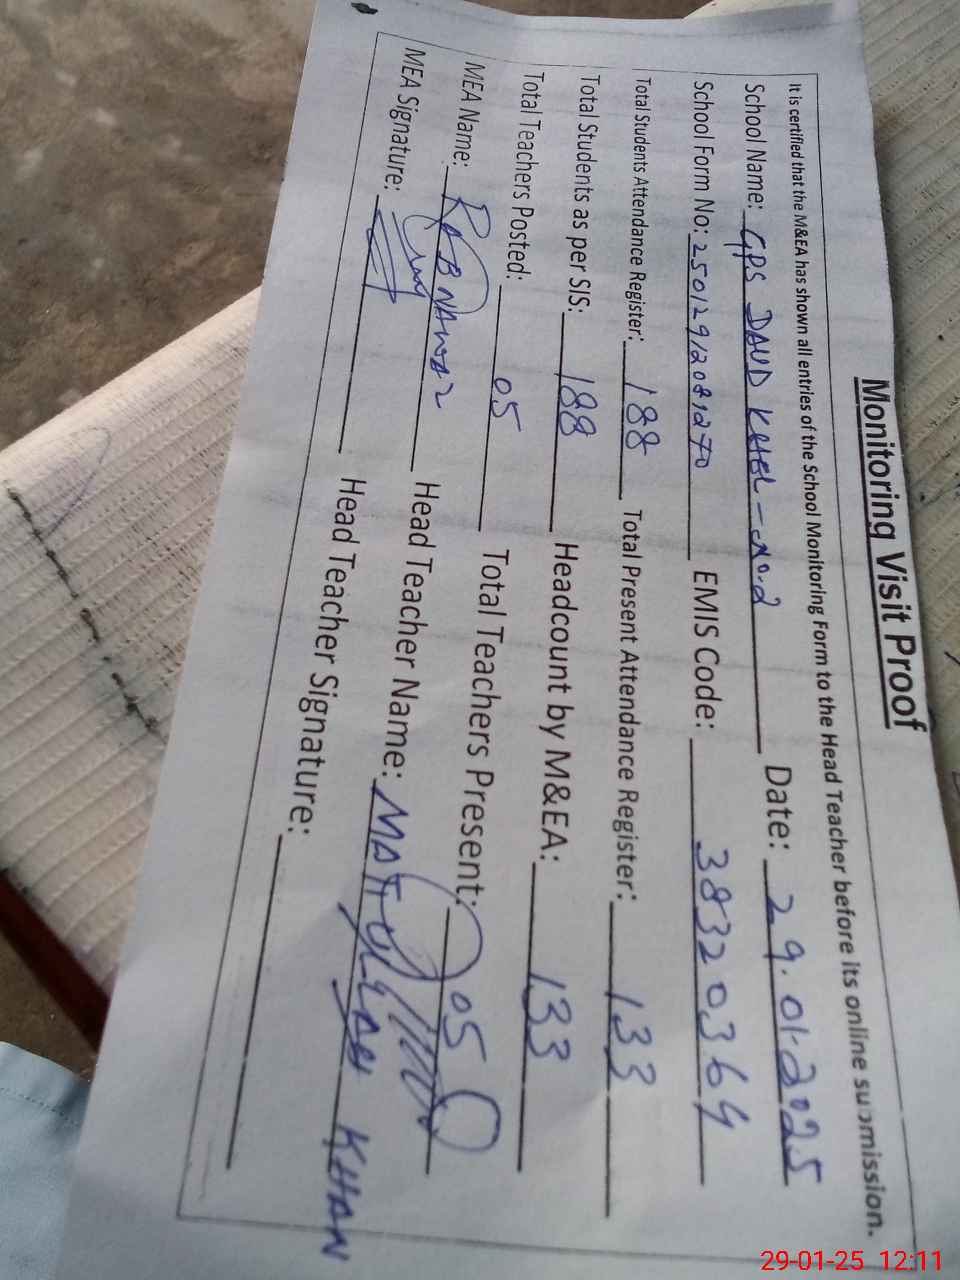 Monitoring Visit Proof
It is certified that the M&EA has shown all entries of the School Monitoring Form to the Head Teacher before its online submission.
School Name: GPS DAUD KHEL-No.2 Date: 29.01.2025
School Form No: 25012912081270 EMIS Code: 38320364
Total Students Attendance Register: 188 Total Present Attendance Register: 133
Total Students as per SIS: 188 Headcount by M&EA: 133
Total Teachers Posted: 05 Total Teachers Present: 05
MEA Name: RABNAWAZ Head Teacher Name: MATIULLAH KHAN
MEA Signature: Head Teacher Signature:
29-01-25 12:11